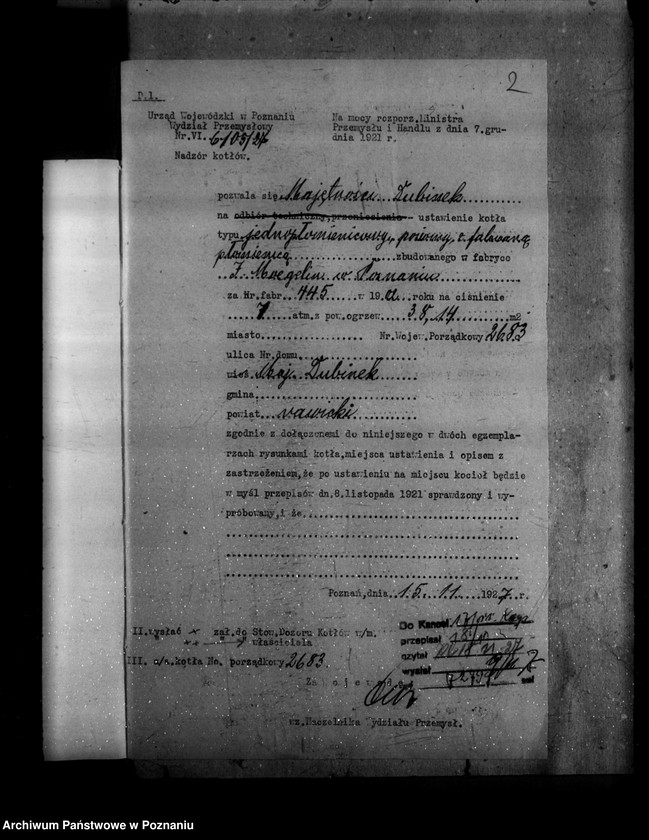 2
D.1.
Urząd Wojewódzki w Poznaniu
Wydział Przemysłowy
Nr.VI. 6103/27
Nadzór kotłów.
Na mocy rozporz.Ministra
Przemysłu i Handlu z dnia 7.gru-
dnia 1921 r.
pozwala się Majętności Dubinek
na odbiór techniczny,przeniesienie - ustawienie kotła
typu jednopłomienicowy, z falowaną
płomienicą zbudowanego w fabryce
w Poznaniu
za Nr.fabr. 445 w 19 roku na ciśnienie
7 atm.z pow.ogrzew. 38,14 m2
miasto Nr.Wojew.Porządkowy 2683
ulica Nr.domu
wieś Maj. Dubinek
gmina
powiat rawicki
zgodnie z dołączonemi do niniejszego w dwóch egzempla-
rzach rysunkami kotła,miejsca ustawienia i opisem z
zastrzeżeniem,że po ustawieniu na miejscu kocioł będzie
w myśl przepisów dn.8.listopada 1921 sprawdzony i wy-
próbowany,i że
Poznań,dnia 15.11 1927 r.
II.wysłać zał.do Stow.Dozoru Kotłów w/m.
właściciela
III. a/a.kotła No. porządkowy 2683
Do Kancel.
przepisał
czytał
wysłał
Za
wz.Naczelnika Wydziału Przemysł.
Archiwum Państwowe w Poznaniu